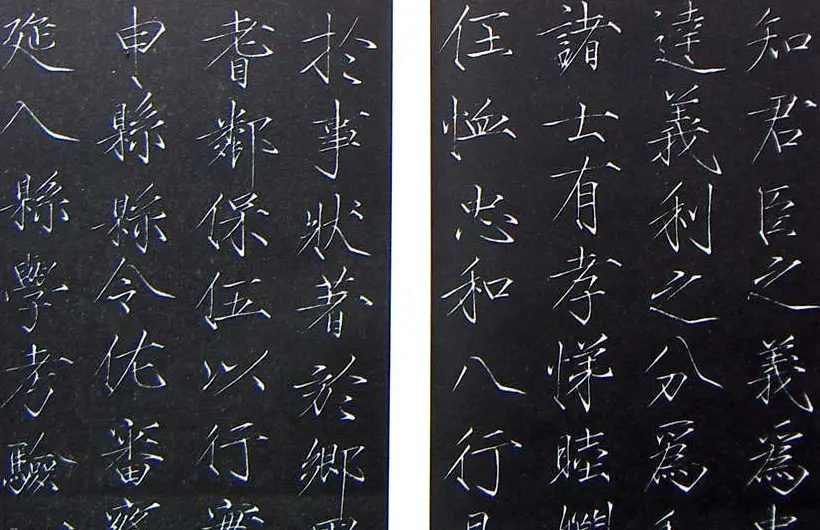 知君臣之義為
達義利之分為
諸士有孝悌睦婣
任恤忠和八行
於事狀著於鄉
耆鄰保伍以行實
申縣縣令佐審察
延入縣學考驗